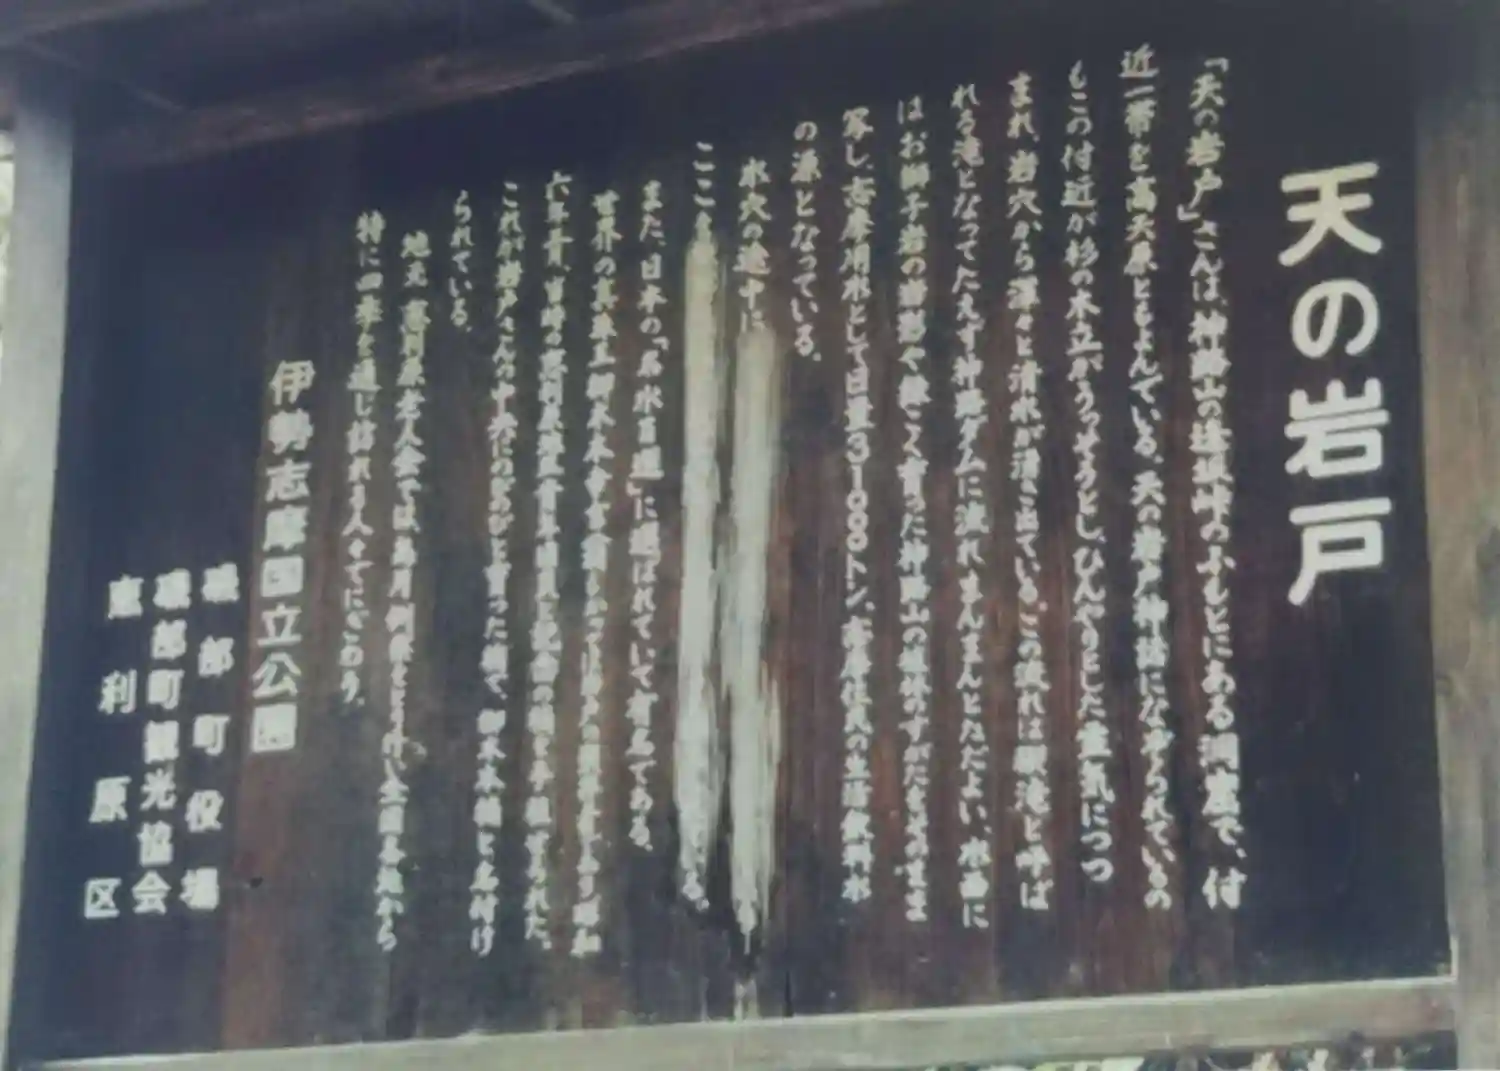 天の岩戸
「天の岩戸」さんは、神路山の逢坂峠のふもとにある洞窟で、付
近一帯を高天原ともよんでいる。天の岩戸神話になぞられているの
もこの付近が杉の木立がうっそうとし、ひんやりとした霊気につつ
まれ、岩穴から渾々と清水が湧き出ている。この流れは禊滝と呼ば
れる滝となってたえず神路ダムに流れまんまんとただよい、水面に
はお獅子岩の岩影や緑こく育った神路山の植林のすがたをそのまま
写し、志摩用水として日量31000トン、志摩住民の生活飲料水
の源となっている。
水穴の途中に
ここを
る。
また、日本の「名水百選」に選ばれていて有名である。
世界の真珠王御木本幸吉翁もかつては
六年青、当時の恵利原
これが岩戸さんの中央にのびのびと育った楠で、御木本楠と名付け
られている。
地元恵利原老人会では、毎月例祭をとり行い全国各地から
特に四季を通じ訪れる人々でにぎわう。
伊勢志摩国立公園
磯部町役場
磯部町観光協会
恵利原区